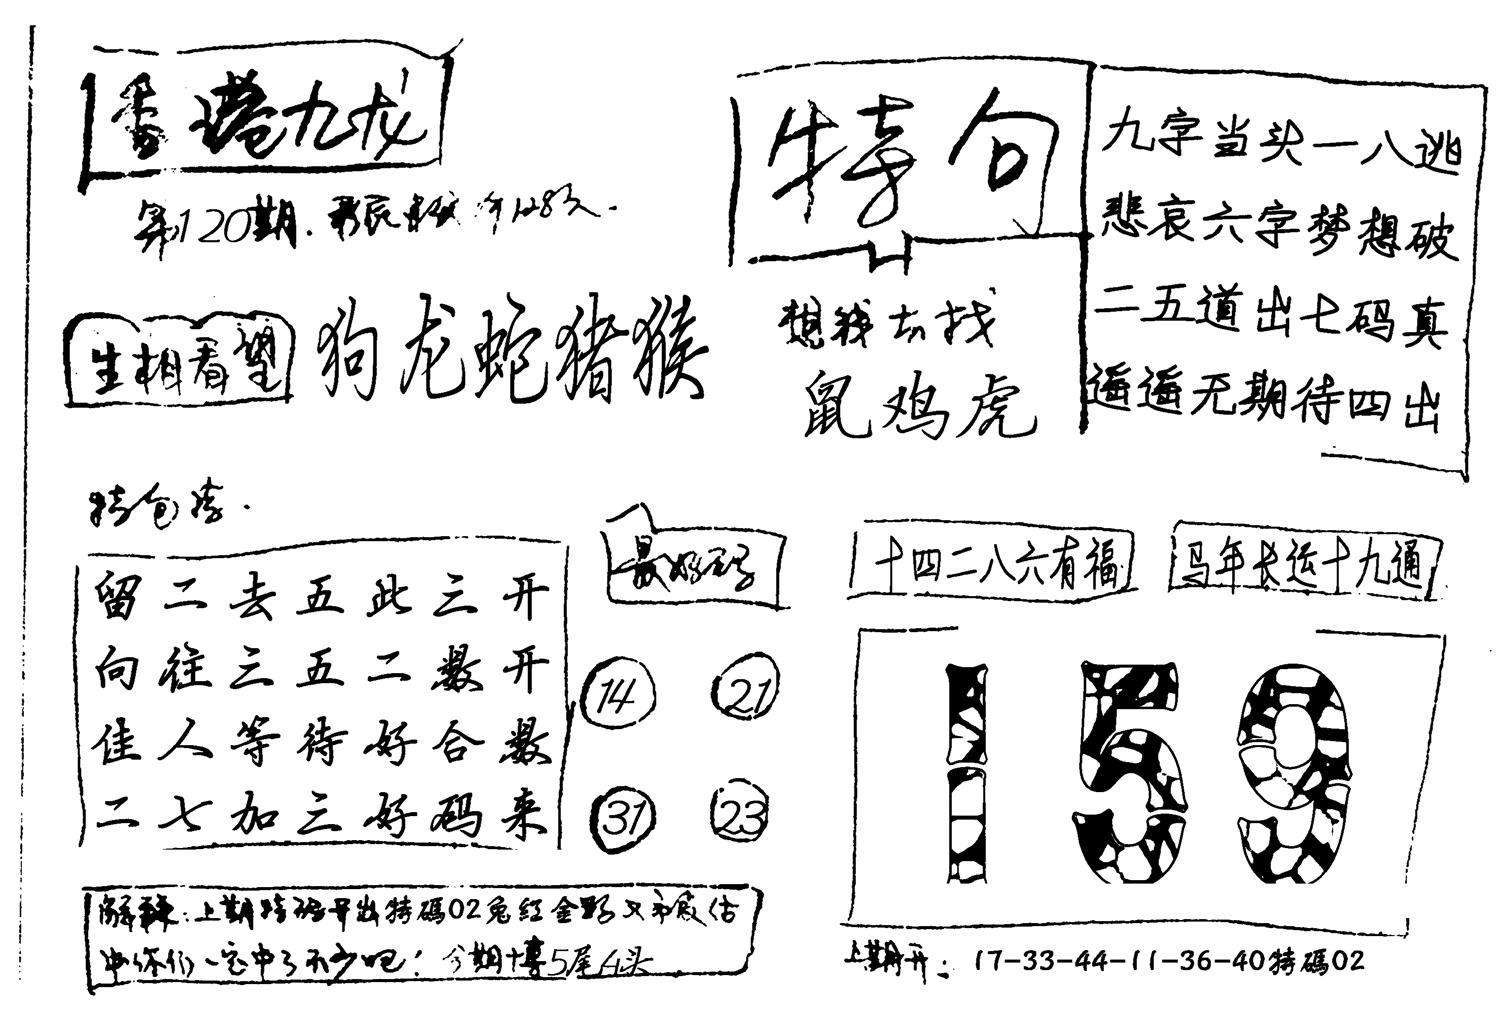 香港九龙
第120期.
生相看望
狗龙蛇猪猴
特句
想钱去找
鼠鸡虎
九字当头一八逃
悲哀六字梦想破
二五道出七码真
遥遥无期待四出
特包
留二去五此三开
向往三五二数开
佳人等待好合数
二七加三好码来
最好
14 21
31 23
十四二八六有福
马年长运十九通
159
解:上期特码开出特碼02兔红金野又估
你们一定中了不少吧!今期博5尾4头
上期开:17-33-44-11-36-40特碼02